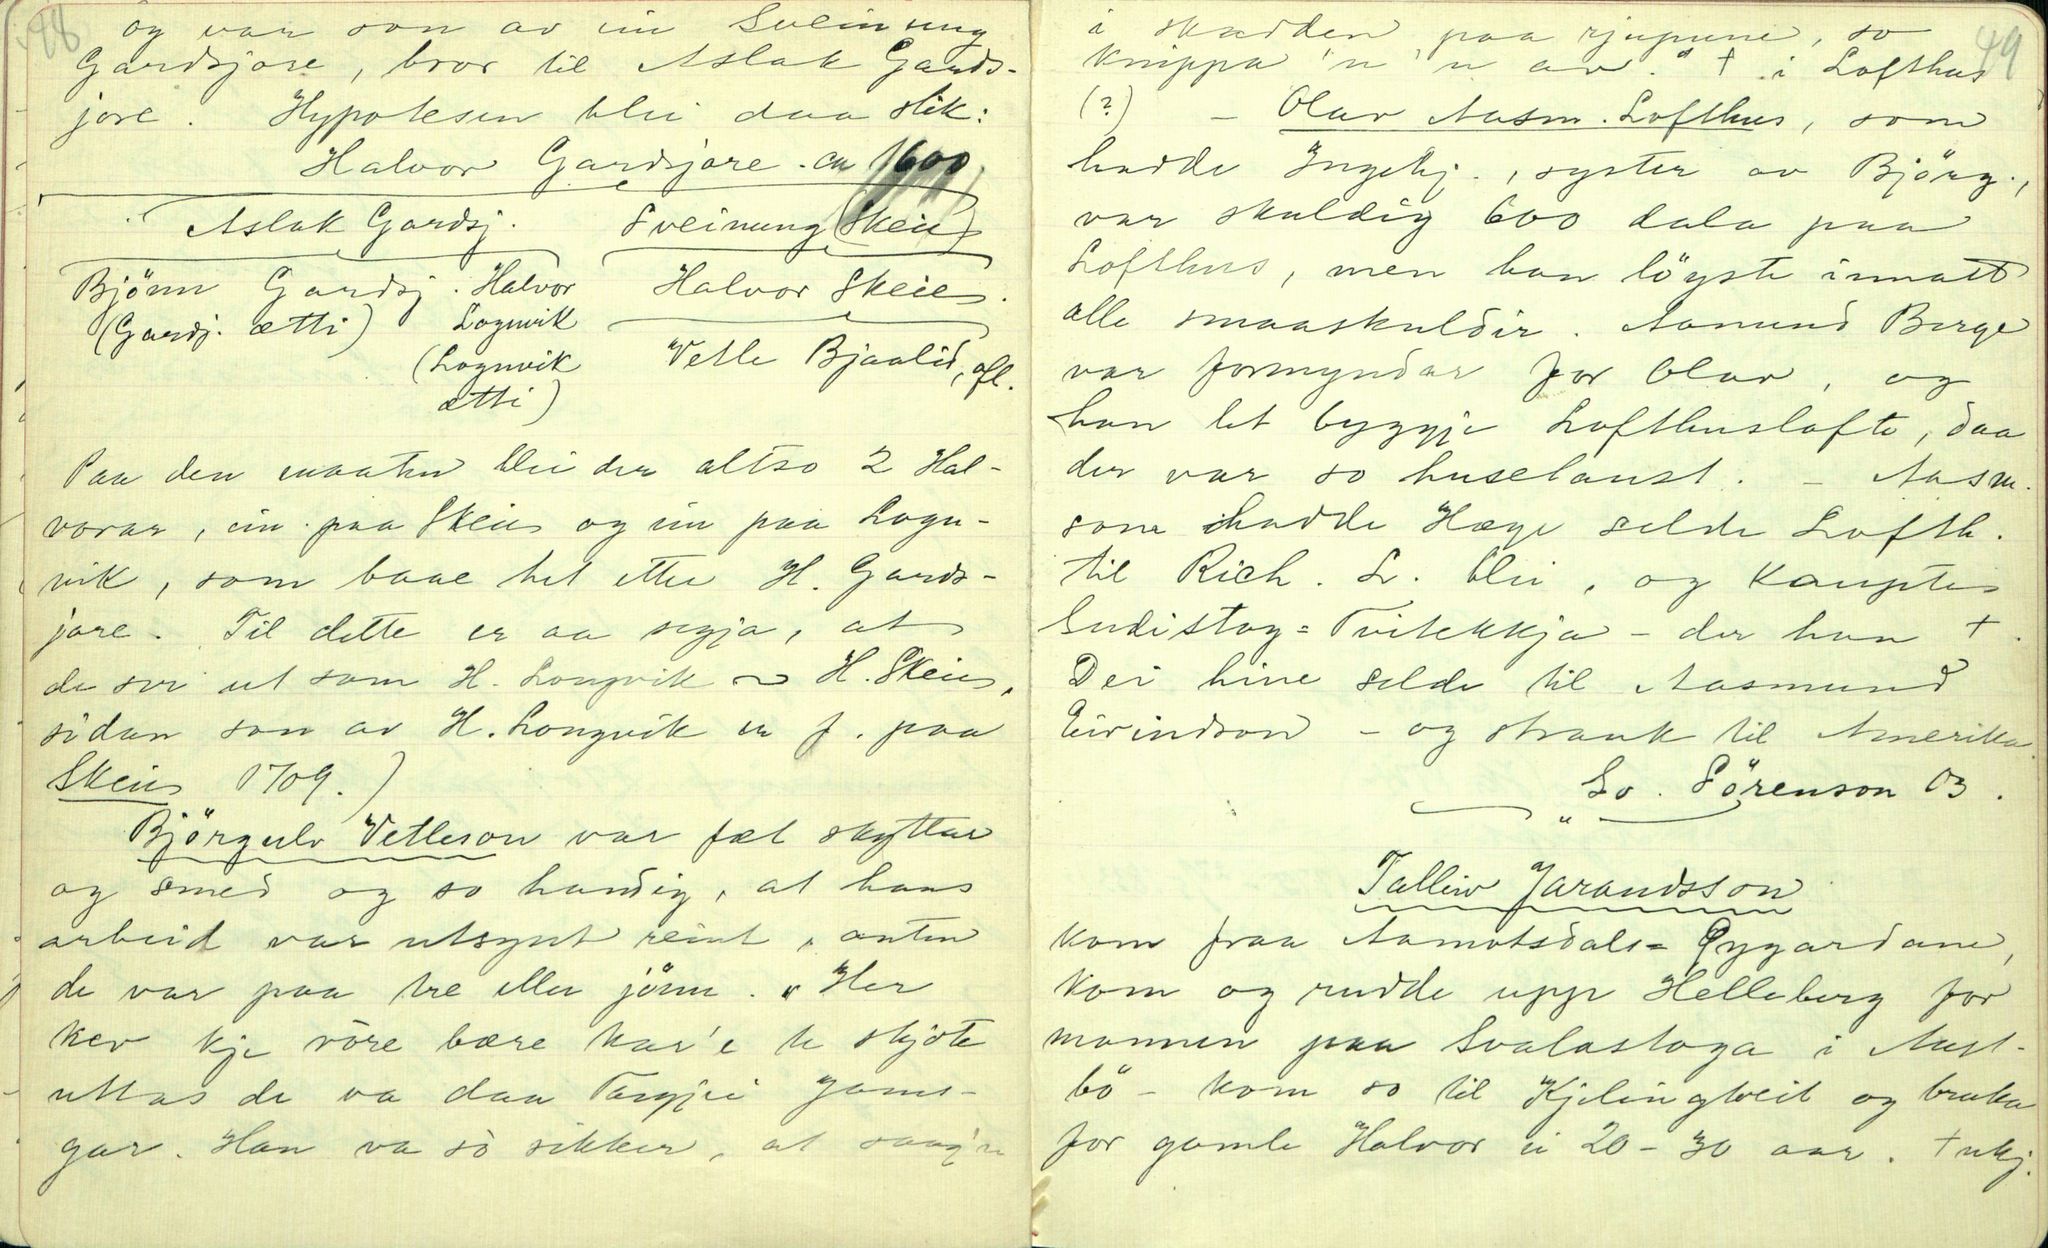 48
og var son av ein Sveinung
Gardsjore, bror til Aslak Gards-
jore. Hypotesen blir daa slik:
Halvor Gardsjore ca 1600
Aslak Gardsj. Sveinung (Skeie)
Bjönn Gardsj. Halvor Halvor Skeie.
(Gardj. ætti) Lognvik
(Lognvik Vetle Bjaalid, ofl.
ætti)
Paa den maaten blir der altso 2 Hal-
vorar, ein paa Skeie og ein paa Logn-
vik, som baae het etter H. Gards-
jore. Til dette er aa segja, at
de ser ut som H. Longvik ~ H. Skeie,
sidan son av H. Longvik er f. paa
Skeie 1709.)
Björgulv Vetleson var fæl skyttar
og smed og so handig, at hans
arbeid var utsynt reint, anten
de var paa tre eller jönn. "Her
kev kje vöre bære kar'e te skjote
uttas de va daa Targjei Jams-
gar. Han va sò sikker, at saag'n
49
i skadden paa rjupune, so
knippa 'n 'n av." † i Lofthus
(?) - Olav Aasm. Lofthus, som
hadde Ingebj., syster av Björg.,
var skuldig 600 dala paa
Lofthus, men han löyste innatt
alle smaaskuldir. Aamund Berge
var formyndar for Olav, og
han let byggje Lofthuslofte, daa
der var so huselaust. - Aasm.
som hadde Hæge selde Lofth.
til Rich. L. blei, og kaupte
Sudistog=Tveitekkja - der han †.
Dei hine selde til Aasmund
Eivindson - og strauk til Amerika.
So. Sörenson 03.
Talleiv Jarandsson
kom fraa Aamotsdals=Øygardane,
kom og rudde upp Helleberg for
mannen paa Svalastoga i Aust-
bö - kom so til Kjelingtveit og bruka
for gamle Halvor ei 20-30 aar. † ukj.